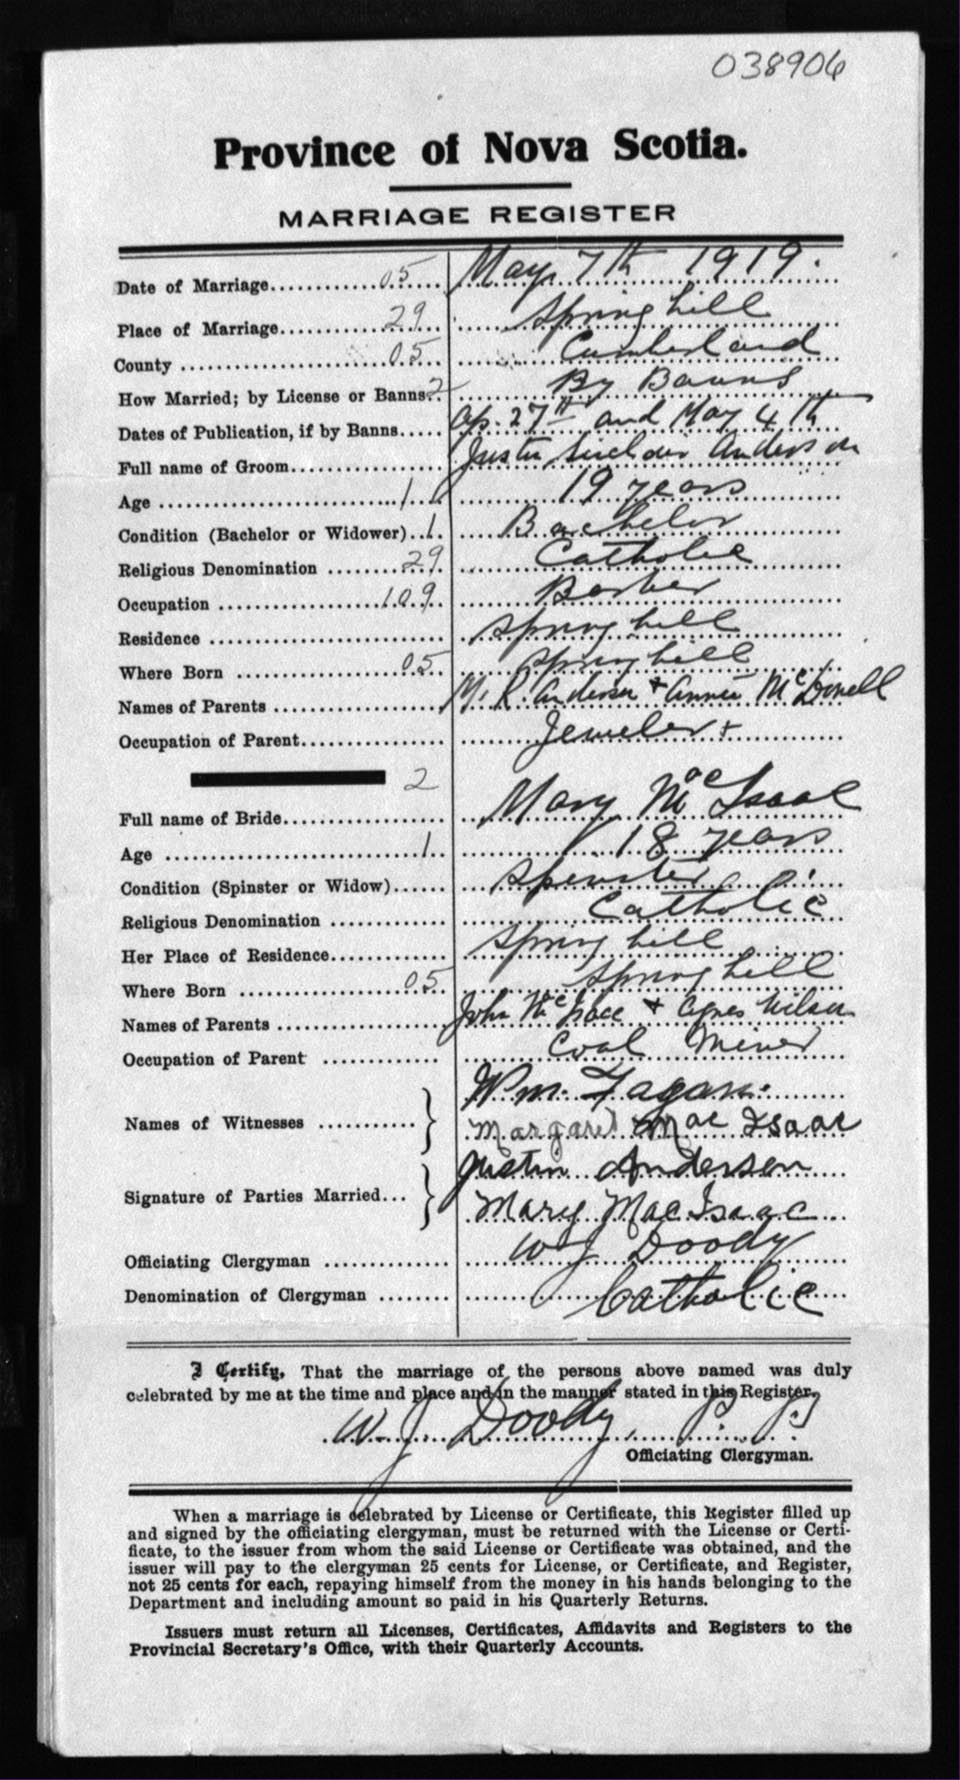 038906
Province of Nova Scotia.
MARRIAGE REGISTER
Date of Marriage............05.. May 7th 1919.
Place of Marriage...........29.. Springhill
County .....................05.. Cumberland
How Married; by License or Banns?2. By Banns
Dates of Publication, if by Banns..... Ap. 27th and May 4th
Full name of Groom.................. Justin Sinclair Anderson
Age ........................1... 19 years
Condition (Bachelor or Widower)..1.. Bachelor
Religious Denomination .......29. Catholic
Occupation ................109.. Barber
Residence ........................... Springhill
Where Born ..................05.. Springhill
Names of Parents .................... R. Anderson + Annie McDonell
Occupation of Parent................. Jeweler +
2
Full name of Bride................... Mary MacIsaac
Age ..........................1.. 18 years
Condition (Spinster or Widow)...... Spinster
Religious Denomination ............. Catholic
Her Place of Residence............. Springhill
Where Born ..................05.. Springhill
Names of Parents .................... John McIsaac + Agnes Wilson
Occupation of Parent ............. Coal Miner
Wm. Fagan.
Names of Witnesses ........... } Margaret MacIsaac
Justin Anderson
Signature of Parties Married... } Mary MacIsaac
Officiating Clergyman .............. W J Doody
Denomination of Clergyman ........ Catholic
I Certify, That the marriage of the persons above named was duly
celebrated by me at the time and place and in the manner stated in this Register.
W. J. Doody P. P.
Officiating Clergyman.
When a marriage is celebrated by License or Certificate, this Register filled up
and signed by the officiating clergyman, must be returned with the License or Certi-
ficate, to the issuer from whom the said License or Certificate was obtained, and the
issuer will pay to the clergyman 25 cents for License, or Certificate, and Register,
not 25 cents for each, repaying himself from the money in his hands belonging to the
Department and including amount so paid in his Quarterly Returns.
Issuers must return all Licenses, Certificates, Affidavits and Registers to the
Provincial Secretary's Office, with their Quarterly Accounts.